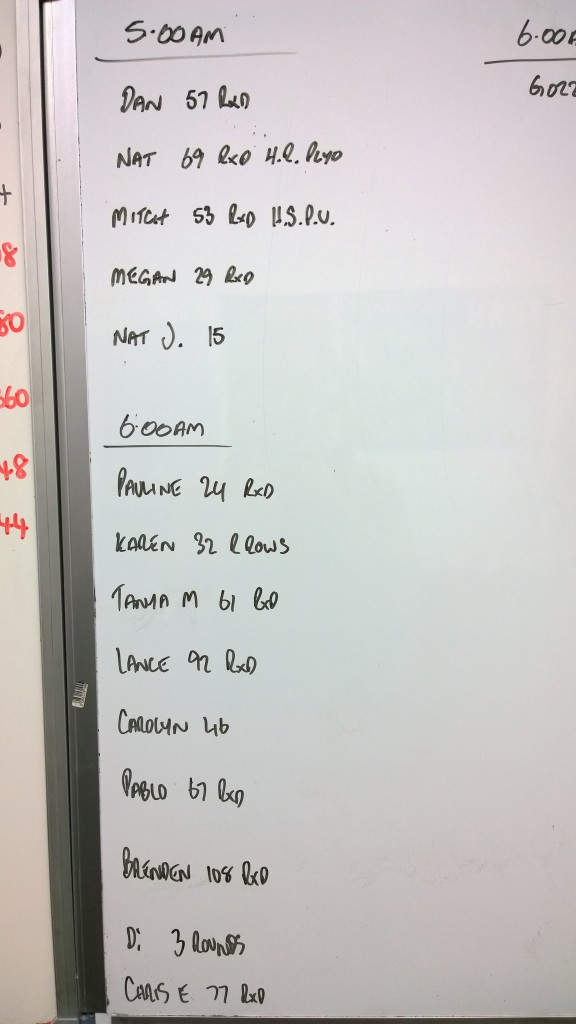 5.00AM
DAN 57 RXD
NAT 69 RXD H.R. PLYO
MITCH 53 RXD H.S.P.U.
MEGAN 29 RXD
NAT J. 15
6:00AM
PAULINE 24 RXD
KAREN 32 R ROWS
TANYA M 61 RXD
LANCE 92 RXD
CAROLYN 46
PABLO 67 RXD
BRENDEN 108 RXD
Di 3 ROUNDS
CARIS E 77 RXD
6.00A
GOZZ
+
8
80
360
48
44